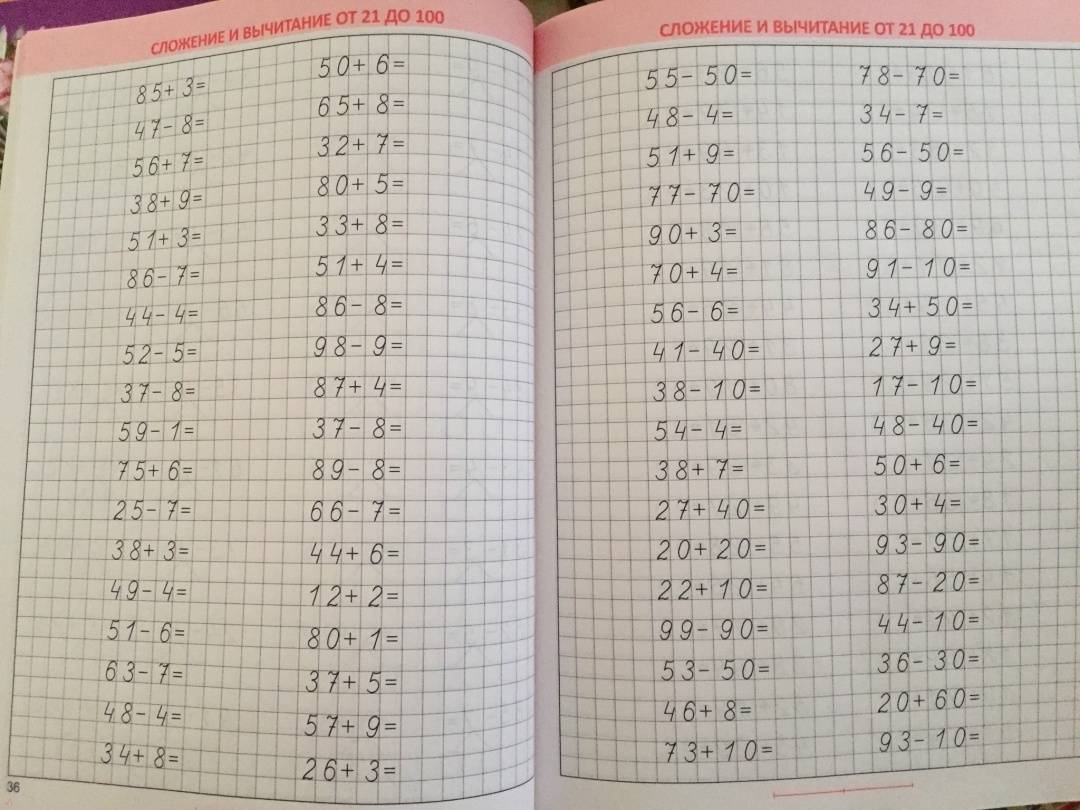 СЛОЖЕНИЕ И ВЫЧИТАНИЕ ОТ 21 ДО 100
85+3=
47-8=
56+7=
38+9=
51+3=
86-7=
44-4=
52-5=
37-8=
59-1=
75+6=
25-7=
38+3=
49-4=
51-6=
63-7=
48-4=
34+8=
50+6=
65+8=
32+7=
80+5=
33+8=
51+4=
86-8=
98-9=
87+4=
37-8=
89-8=
66-7=
44+6=
12+2=
80+1=
37+5=
57+9=
26+3=
36
СЛОЖЕНИЕ И ВЫЧИТАНИЕ ОТ 21 ДО 100
55-50=
48-4=
51+9=
77-70=
90+3=
70+4=
56-6=
41-40=
38-10=
54-4=
38+7=
27+40=
20+20=
22+10=
99-90=
53-50=
46+8=
73+10=
78-70=
34-7=
56-50=
49-9=
86-80=
91-10=
34+50=
27+9=
17-10=
48-40=
50+6=
30+4=
93-90=
87-20=
44-10=
36-30=
20+60=
93-10=